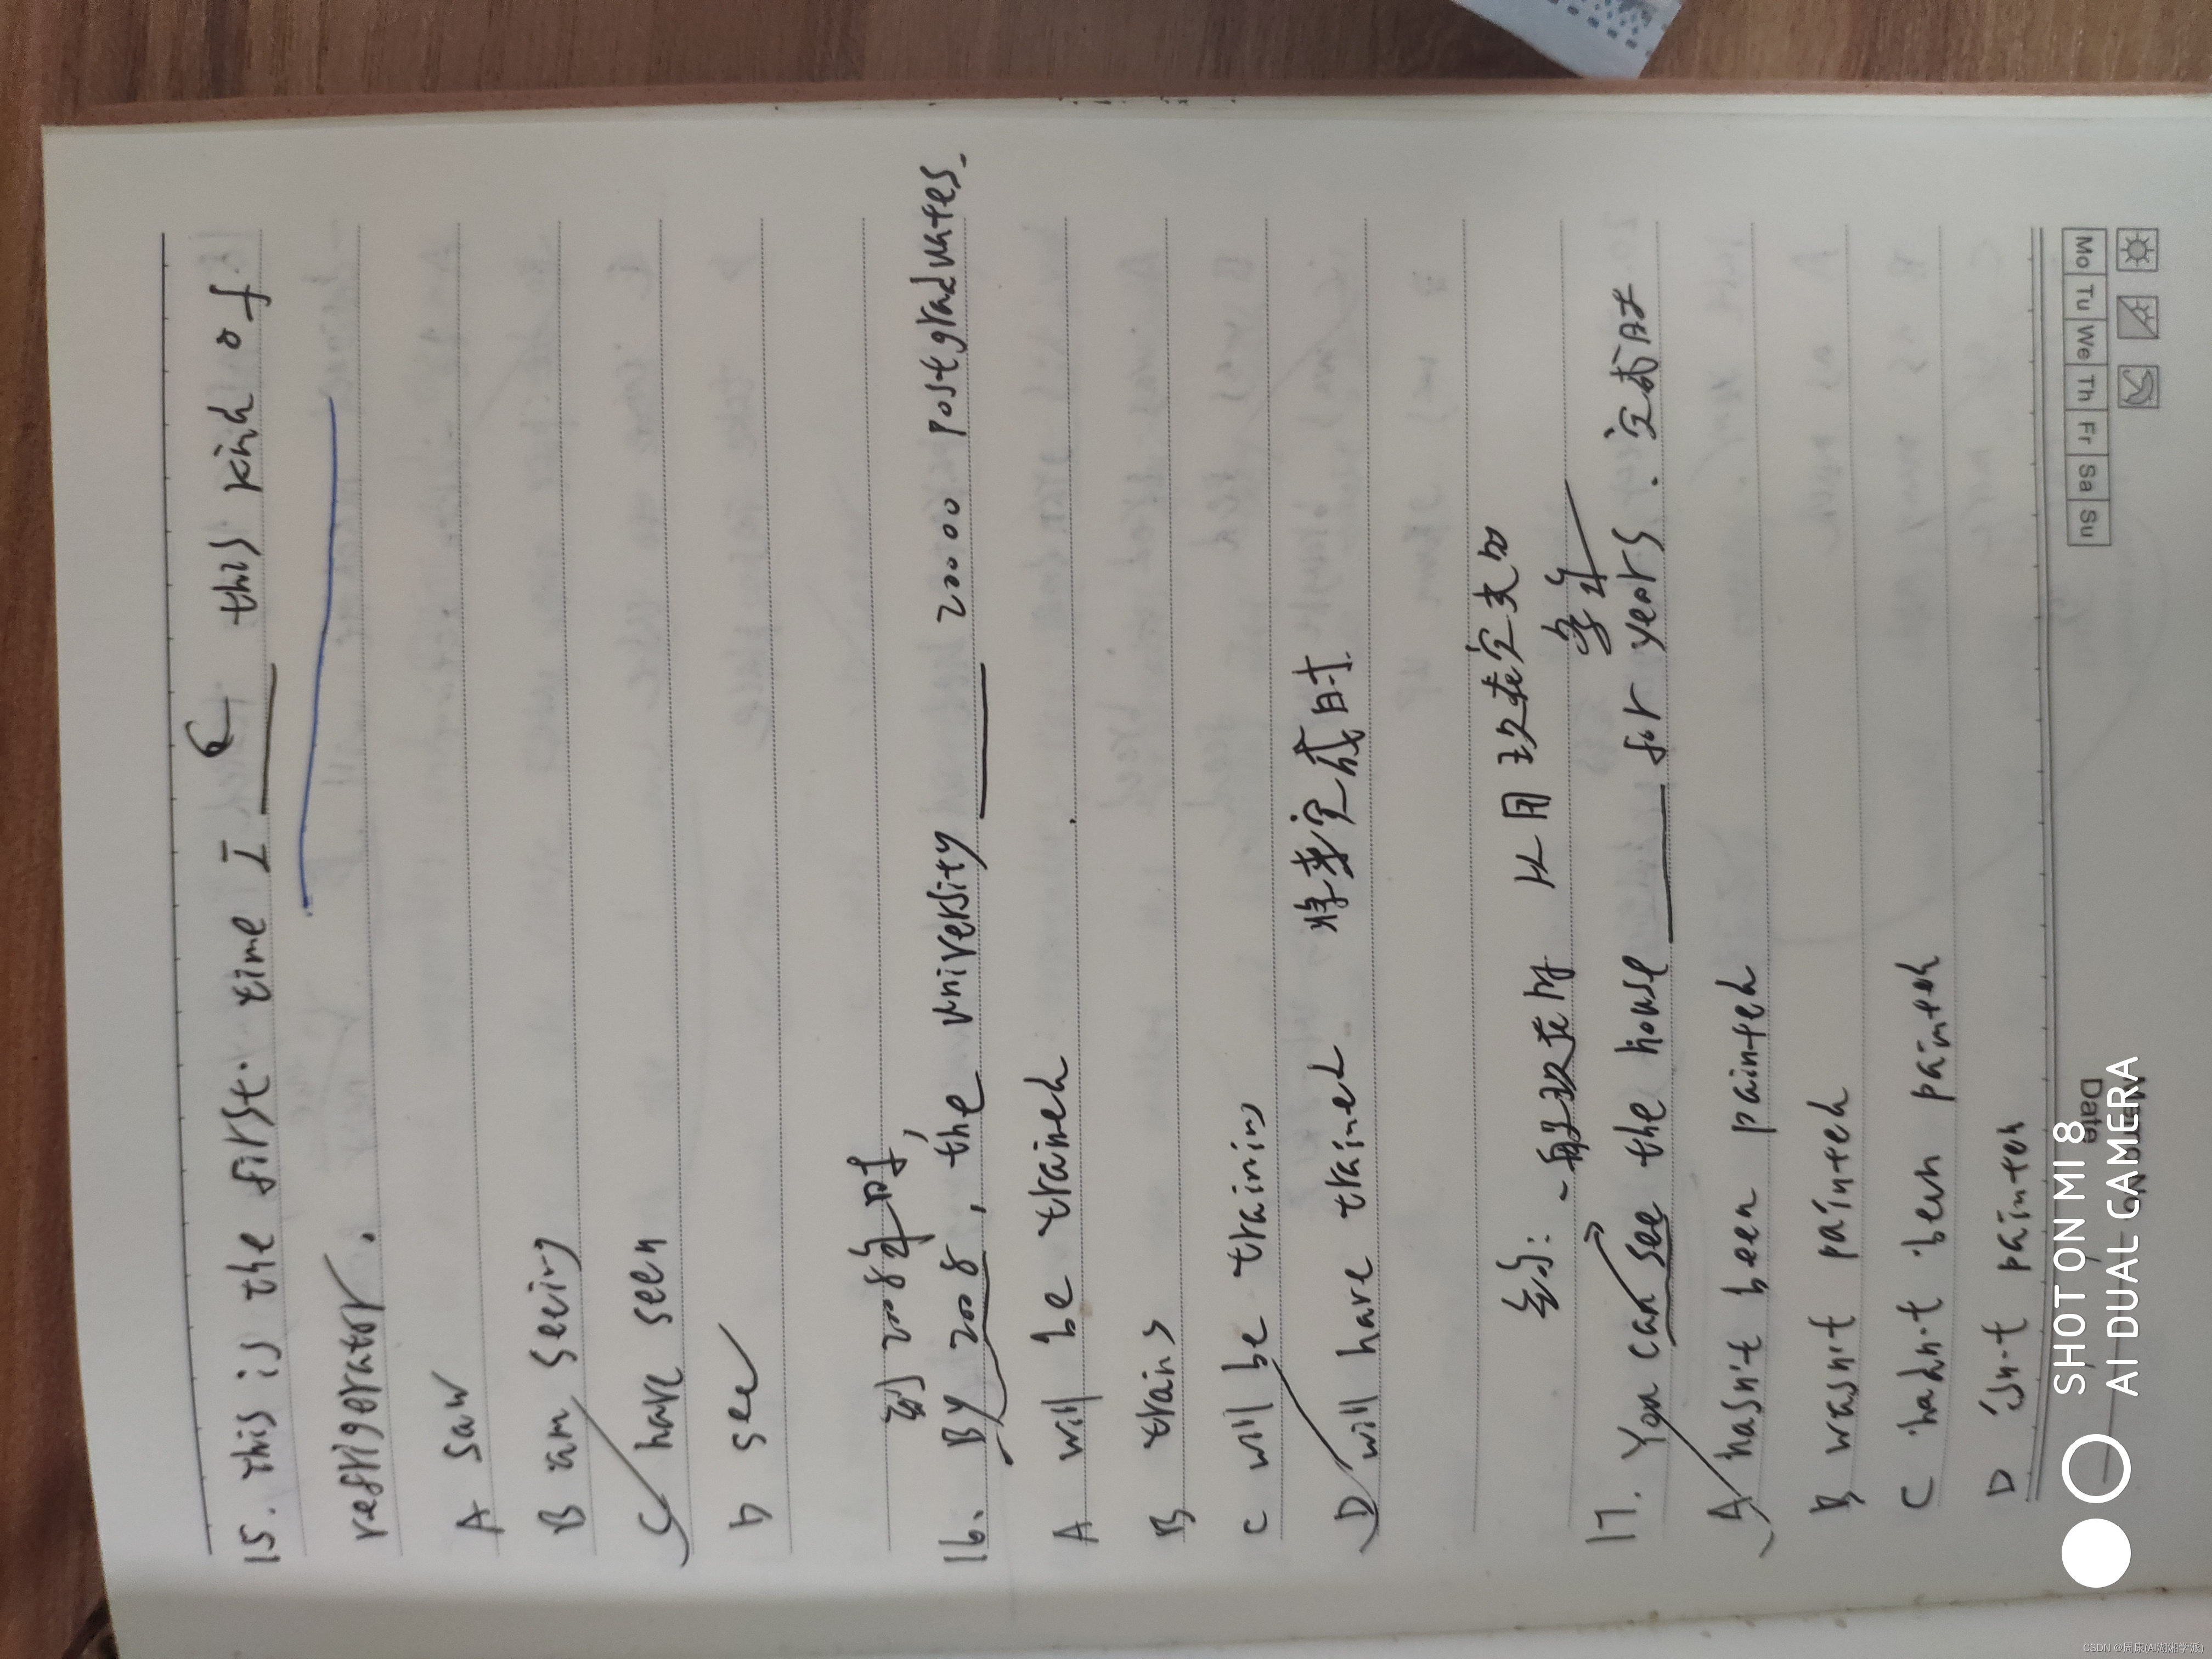 15. This is the first time I ____ this kind of
C
refrigerator.
A saw
B am seeing
C have seen
D see
到2008年时,
16. By 2008, the university ____ 20000 postgraduates.
A will be trained
B trains
C will be training
D will have trained 将来完成时
结: 一般现在时 只用现在完成
17. You can see the house ____ for years. 完成时
A hasn't been painted
B wasn't painted
C hadn't been painted
D isn't painted
Mo Tu We Th Fr Sa Su
Date
SHOT ON MI 8
AI DUAL CAMERA
CSDN @周康(AI湖湘学派)